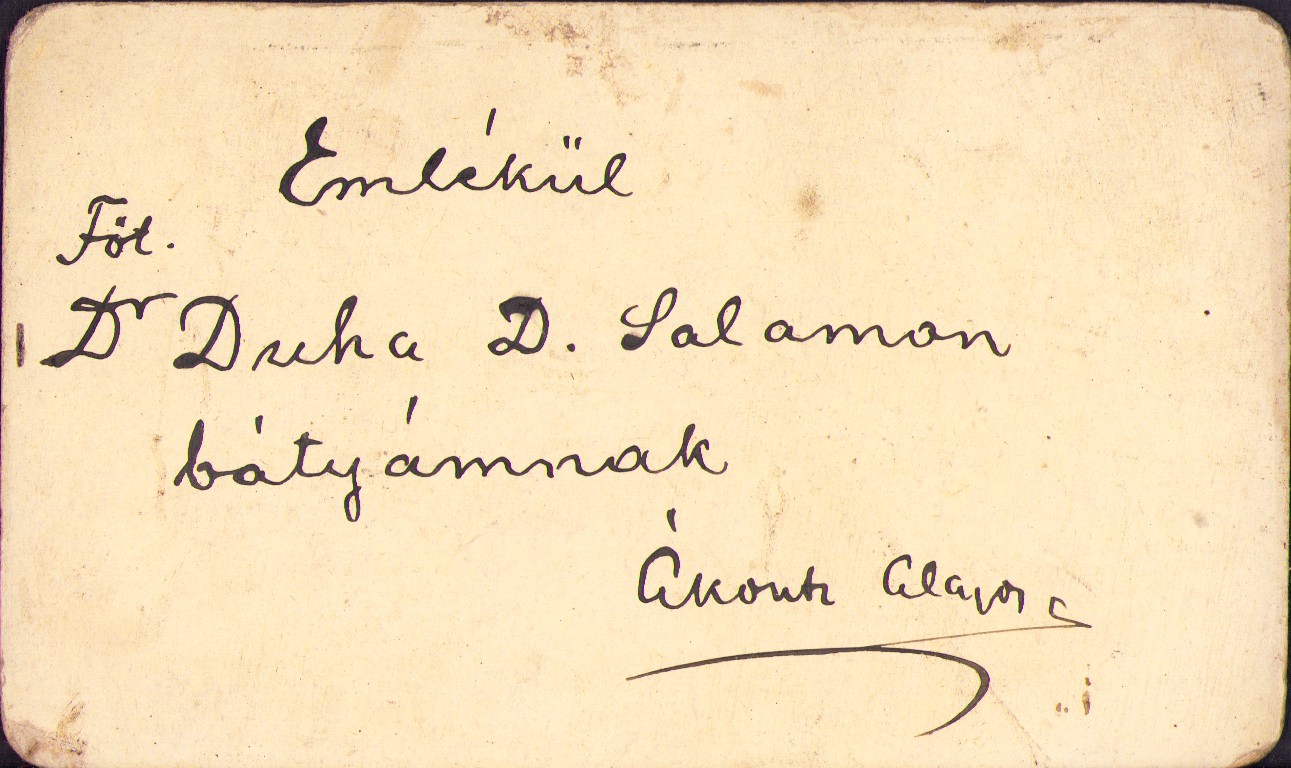 Emlékül
Föt.
Dr Duha D. Salamon
bátyámnak
Ákontz Alajos